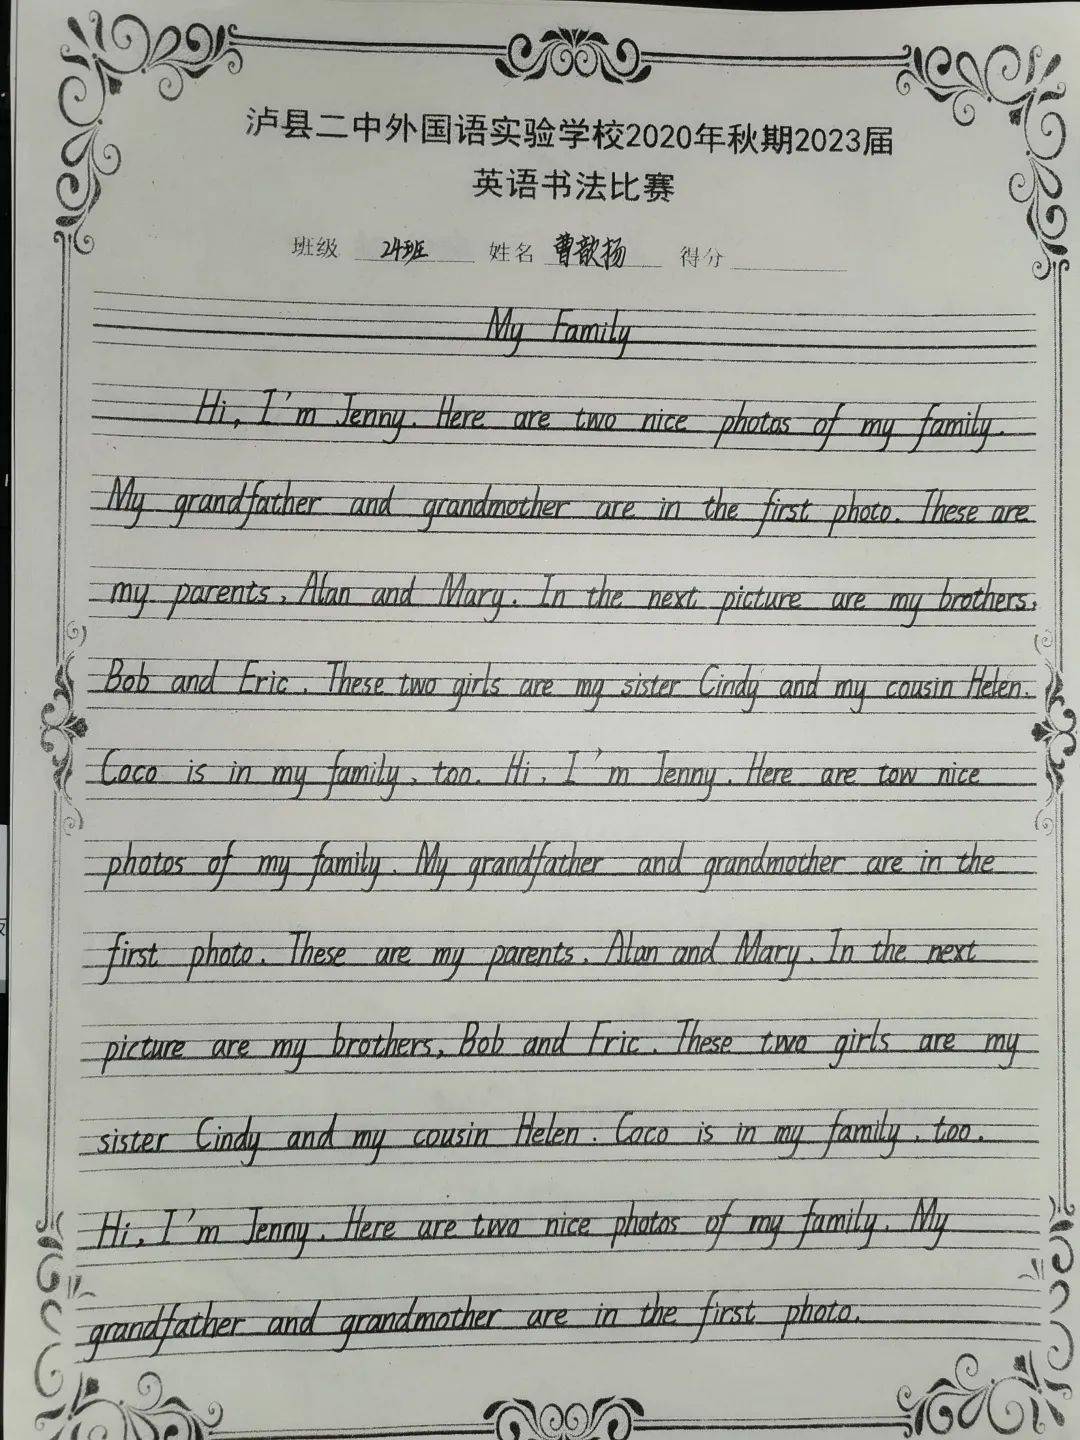 泸县二中外国语实验学校2020年秋期2023届
英语书法比赛
班级 24班 姓名 曹歆扬 得分
My Family
Hi, I'm Jenny. Here are two nice photos of my family.
My grandfather and grandmother are in the first photo. These are
my parents, Alan and Mary. In the next picture are my brothers,
Bob and Eric. These two girls are my sister Cindy and my cousin Helen.
Coco is in my family, too. Hi, I'm Jenny. Here are tow nice
photos of my family. My grandfather and grandmother are in the
first photo. These are my parents, Alan and Mary. In the next
picture are my brothers, Bob and Eric. These two girls are my
sister Cindy and my cousin Helen. Coco is in my family, too.
Hi, I'm Jenny. Here are two nice photos of my family. My
grandfather and grandmother are in the first photo.